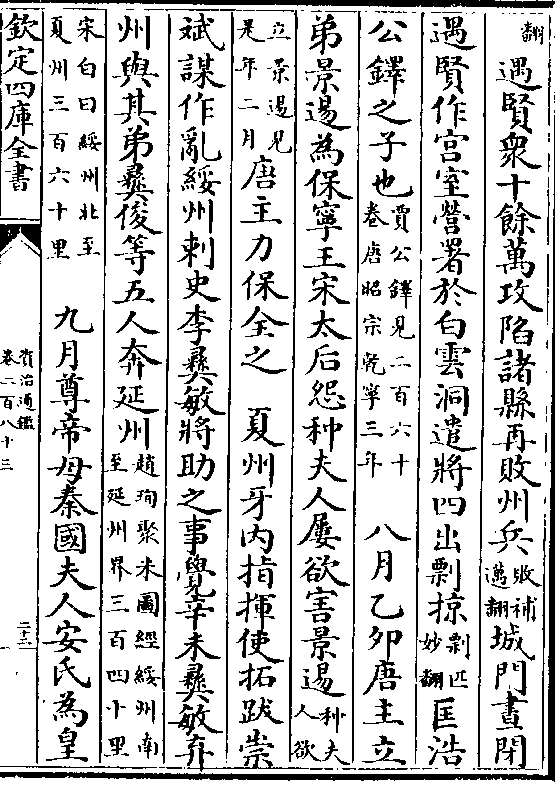 翻遇賢衆十餘萬攻陷諸縣再敗州兵敗補邁翻城門晝閉
遇賢作宫室營署於白雲洞遣將四出剽掠剽匹妙翻匡浩
公鐸之子也賈公鐸見二百六十卷唐昭宗乾寧三年　八月乙卯唐主立
弟景逷為保寧王宋太后怨种夫人屢欲害景逷种夫人欲
立景逷見是年二月唐主力保全之　夏州牙内指揮使拓跋崇
斌謀作亂綏州刺史李彞敏將助之事覺辛未彞敏弃
州與其弟彞俊等五人奔延州趙珣聚米圖經綏州南至延州界三百四十里
宋白曰綏州北至夏州三百六十里　九月尊帝母秦國夫人安氏為皇
欽定四庫全書
資治通鑑
卷二百八十三
二十一